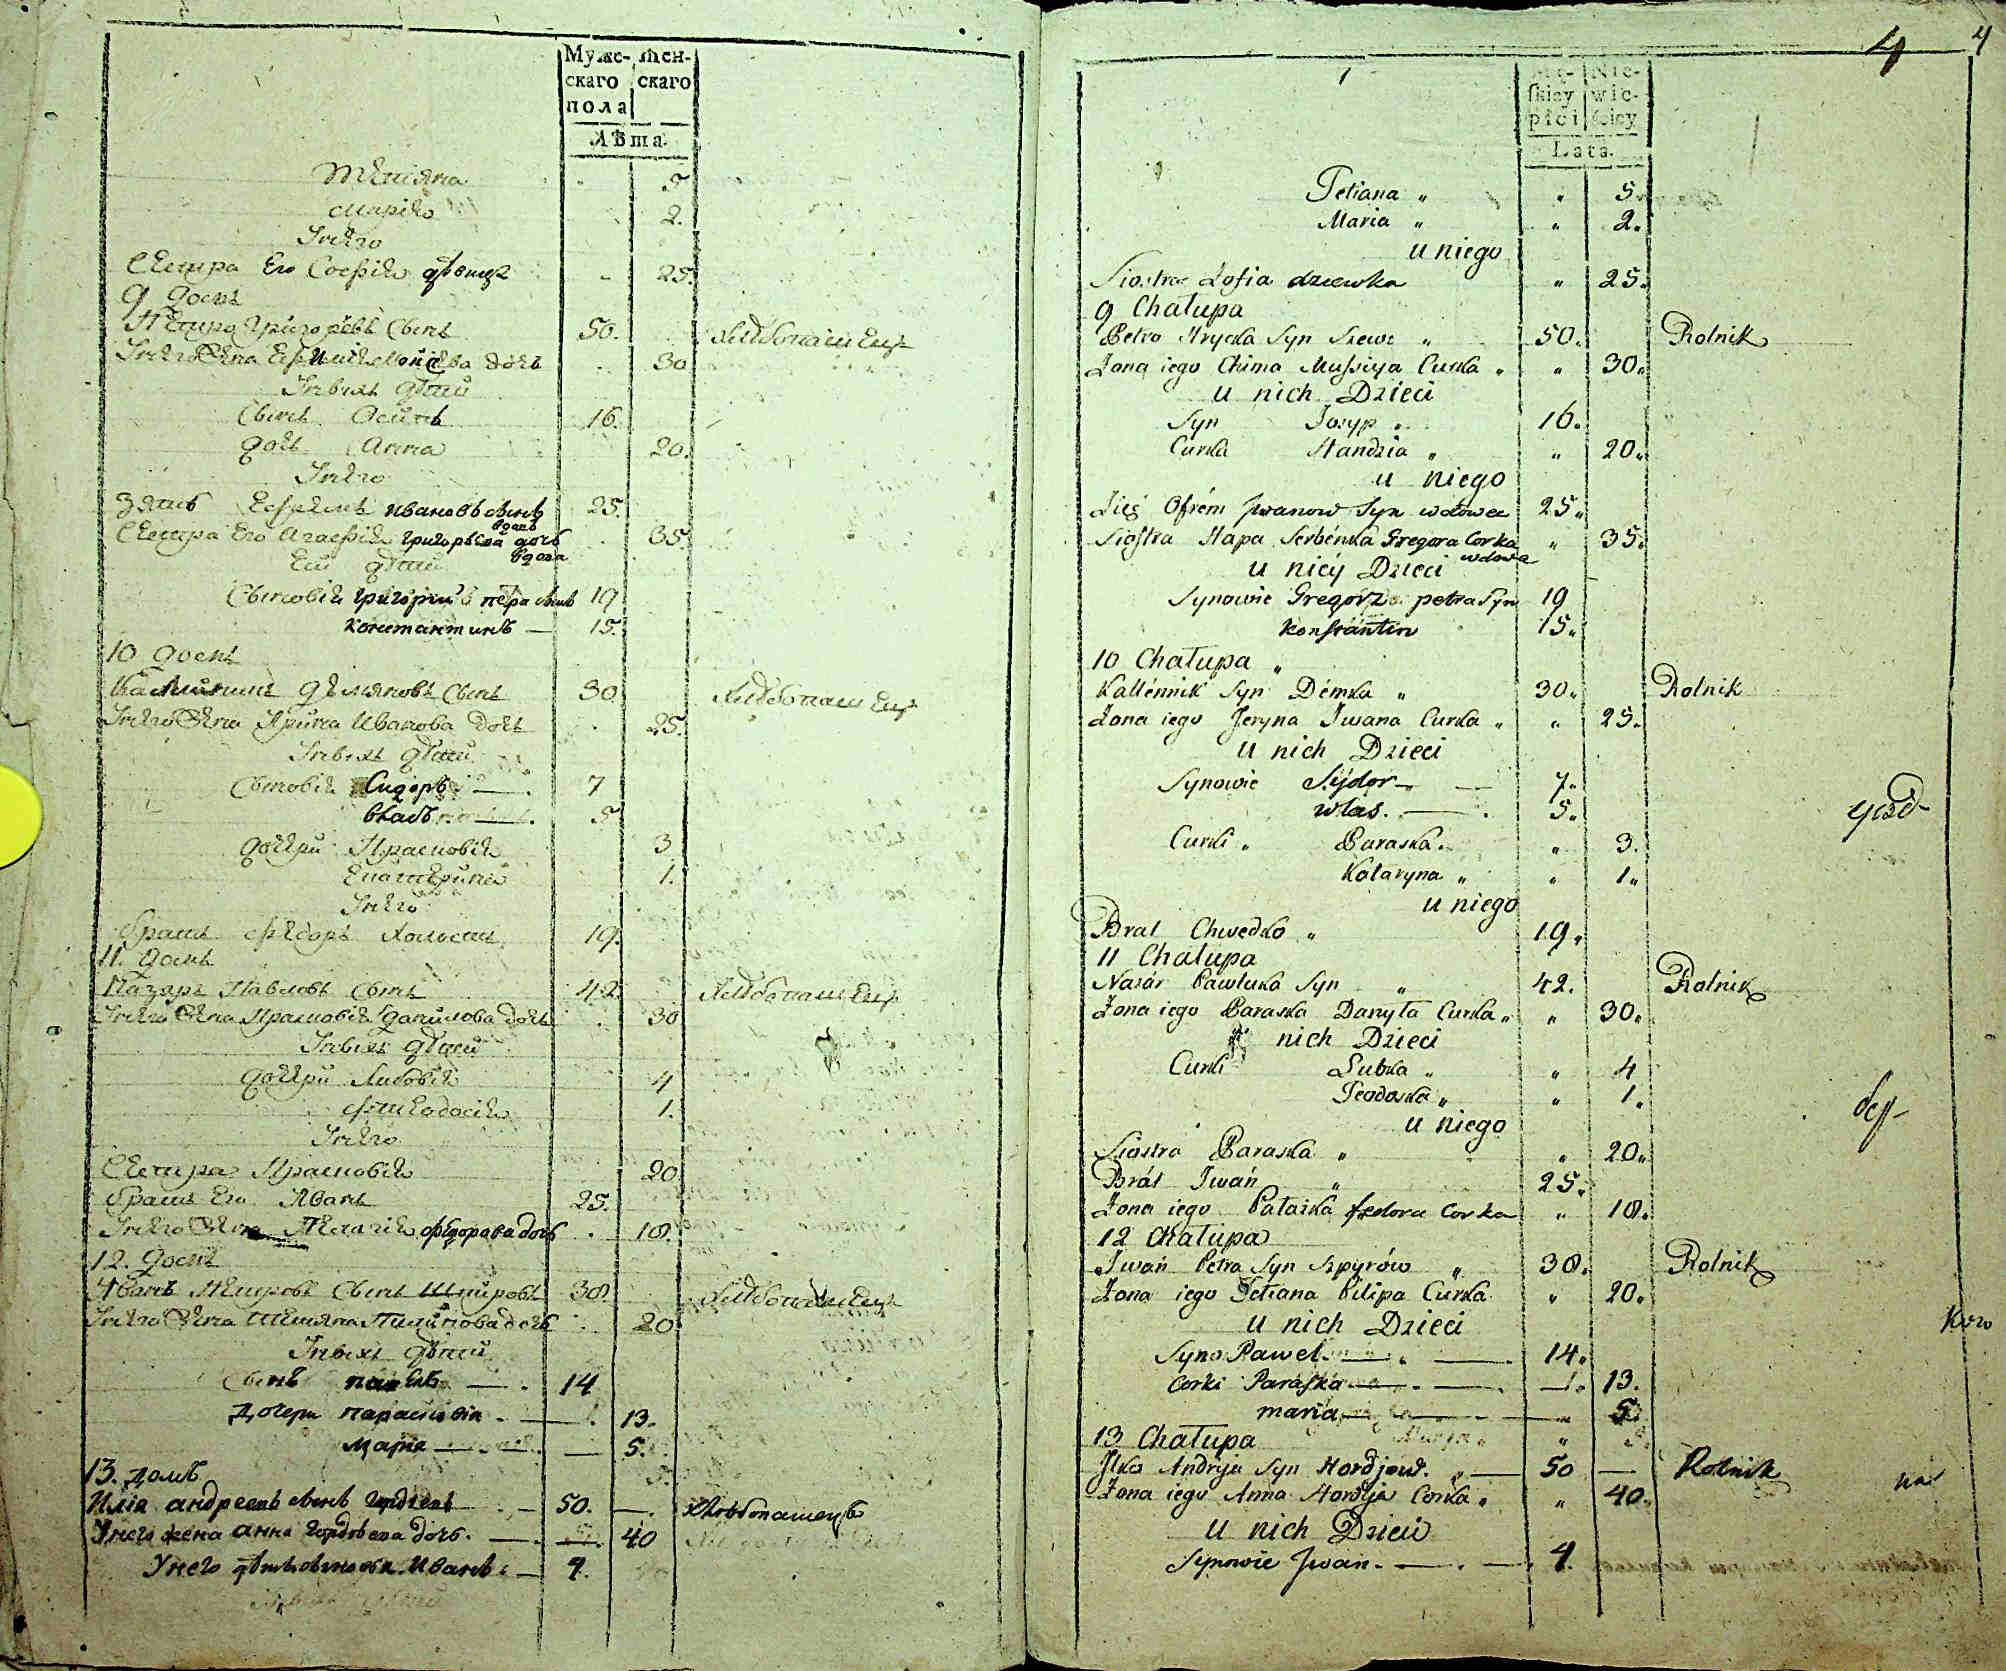 Муже-
скаго
пола
Жен-
скаго
Лѣта.
Тетіяна 5
Маріѧ 2.
У него
Сестра Его Софія дѣвица 25.
9 домъ
Петро Григорѣвъ сынъ 50. Хлѣбопашецъ
У него жена Евфимія дочь 30
У нихъ дѣти
Сынъ Осипъ 16.
дочь Анна 20.
У него
Зять Ефремъ ивановъ сынъ 25.
вдовъ
Сестра Его Агафія григорьева дочь 35.
вдова
Ей дѣти
Сыновія григорій петра сынъ 19
константинъ — 15.
10 домъ
Демяновъ Сынъ 30 Хлѣбопашецъ
У него жена Ирина Иванова дочь 25.
У нихъ дѣти
Сыновія Сидоръ — 7
власъ — 5
дочери Прасковія 3
Екатерина 1.
У него
братъ Федоръ холостъ 19.
11. домъ
Назаръ Павловъ Сынъ 42. Хлѣбопашецъ
У него жена Прасковія данилова дочь 30
У нихъ дѣти
дочери Любовія 4
Феодосія 1.
У него
Сестра Прасковія 20
братъ Его Иванъ 25.
У него жена Пелагія федорова дочь 18.
12. домъ
Иванъ Петровъ Сынъ Шпировъ 38. Хлѣбопашецъ
У него жена Тетіяна Пилипова дочь 20
У нихъ дѣти
Сынъ павелъ — 14
Дочери параскевія — 13.
Марія — 5.
13. домъ
Илія андреевъ сынъ 50. — хлѣбопашецъ
У него жена анна дочь — 40
У него Иванъ — 4.
4 4
Mę-
skiey
płci
Nie-
wie-
sciey
Lata.
Tetiana „ „ 5.
Maria „ „ 2.
u niego
Siostra Zofia dziewka „ 25.
9 Chałupa
Petro Hrycka Syn Szewc „ 50. Rolnik
Zona iego Chima Mussiya Curka „ „ 30.
u nich Dzieci
Syn Josyp „ 16.
Curka Handzia „ „ 20.
u niego
Zięć Ofrém Jwanow Syn wdowec 25.
Siostra Hapa Serbénska Gregora Corka „ 35.
wdowa
u niey Dzieci
Synowie Gregorz petra Syn 19
Konstantin 15.
10 Chałupa „
Kallénnik Syn Démka „ 30. Rolnik
Zona iego Jeryna Jwana Curka „ „ 25.
u nich Dzieci
Synowie Sydor — 7.
włas. — 5.
Curki „ Paraska. „ 3.
Kataryna „ „ 1.
u niego
Brat Chwedko „ 19.
11 Chałupa
Nazár Pawluka Syn „ 42. Rolnik
Zona iego Paraska Danyła Curka „ „ 30.
u nich Dzieci
Curki Lubka „ „ 4
Teodoska „ „ 1.
u niego
Siostra Paraska „ „ 20.
Brát Jwáń „ 25.
Zona iego Pałaska fedora Corka „ 18.
12 Chałupa
Jwáń Petra Syn Szpyrów „ 38. Rolnik
Zona iego Tetiana Pilipa Curka „ 20.
u nich Dzieci
Syn Paweł — 14.
Corki Paraska — 13.
maria — 5
13 Chałupa
Jlko Andrija Syn Hordjow. — 50 — Rolnik
Zona iego Anna Hordija Corka „ „ 40.
u nich Dzieci
Synowie Jwan. — 4.